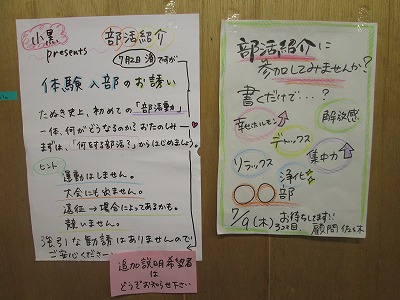 小黒
presents
部活紹介
7月2日(月)ですが
体験入部のお誘い
たぬき史上、初めての「部活動」
一体、何がどうなるのか?おたのしみ♥
まずは、「何をする部活?」からはじめましょう。
ヒント
運動はしません。
大会にも出ません。
遠征→場合によってあるかも。
競いません。
強引な勧誘はありませんので
ご安心ください
追加説明希望者
は
どうぞお知らせ下さい
部活紹介に
参加してみませんか?
書くだけで…?
幸せホルモン↑
解放感
デトックス
リラックス
集中力↑
浄化
○○部
7/9(木)
お待ちしてます!!
顧問 佐々木